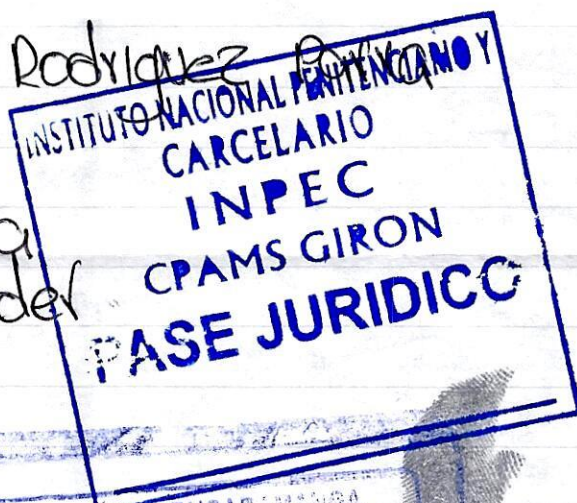 Rodriguez
INSTITUTO NACIONAL PENITENCIARIO Y
CARCELARIO
INPEC
CPAMS GIRON
PASE JURIDICO
der